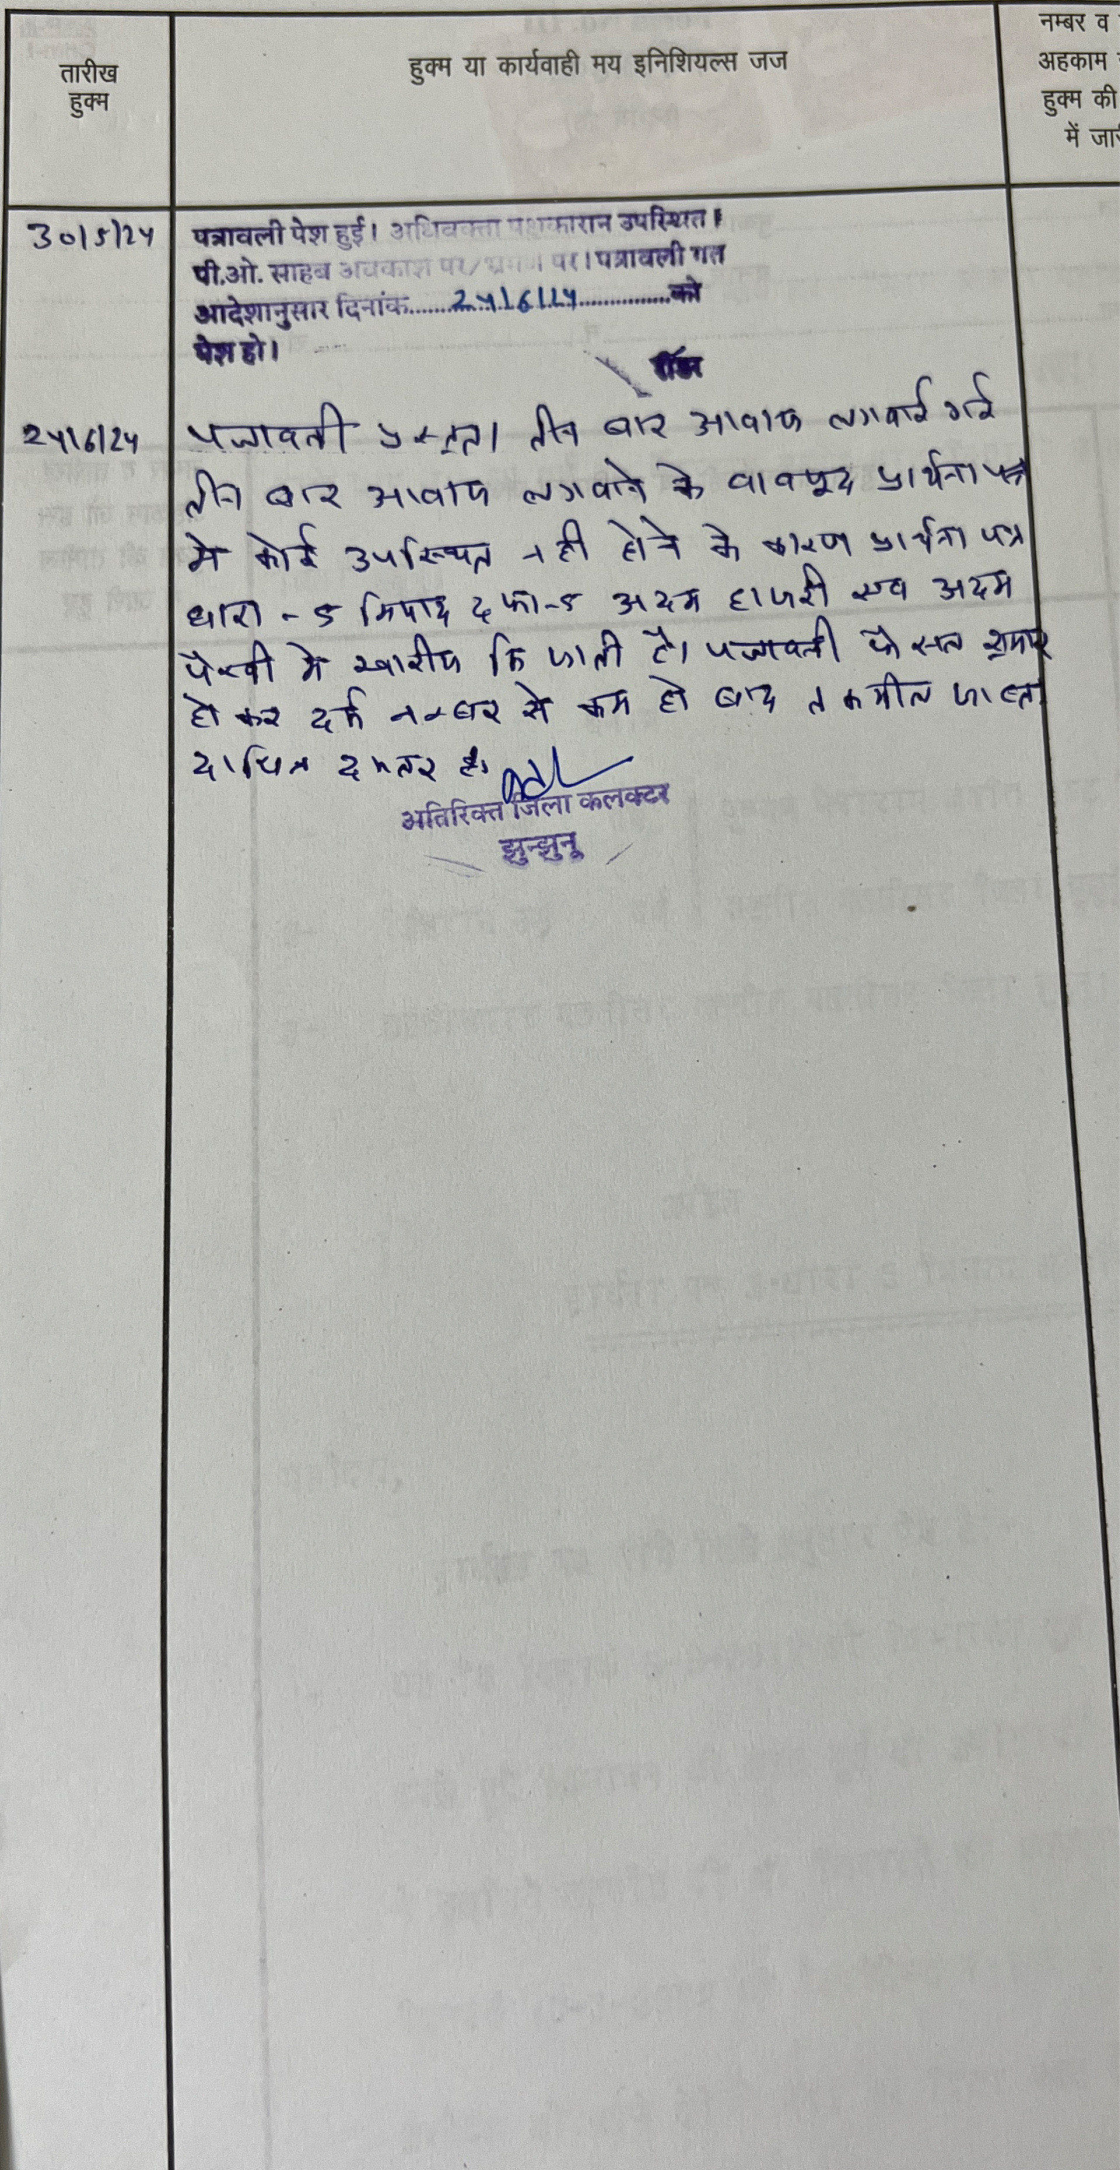 तारीख
हुक्म
हुक्म या कार्यवाही मय इनिशियल्स जज
नम्बर व
अहकाम
हुक्म की
में जारी
30/5/24
पत्रावली पेश हुई। अधिवक्ता पक्षकारान उपस्थित।
पी.ओ. साहब अवकाश पर/भ्रमण पर। पत्रावली गत
आदेशानुसार दिनांक........24/6/24...............को
पेश हो।
रीडर
24/6/24
पत्रावली प्रस्तुत। तीन बार आवाज लगवाई गई
तीन बार आवाज लगवाने के वावजूद प्रार्थना पत्र
मे कोई उपस्थित नही होने के कारण प्रार्थना पत्र
धारा - 5 मियाद दफा-5 अदम हाजरी एव अदम
पैरवी मे खारीज कि जाती है। पत्रावली फैसल शुमार
हो कर दर्ज नम्बर से कम हो बाद तकमील जाब्ता
दाखिल दफ्तर हो
अतिरिक्त जिला कलक्टर
झुन्झुनू